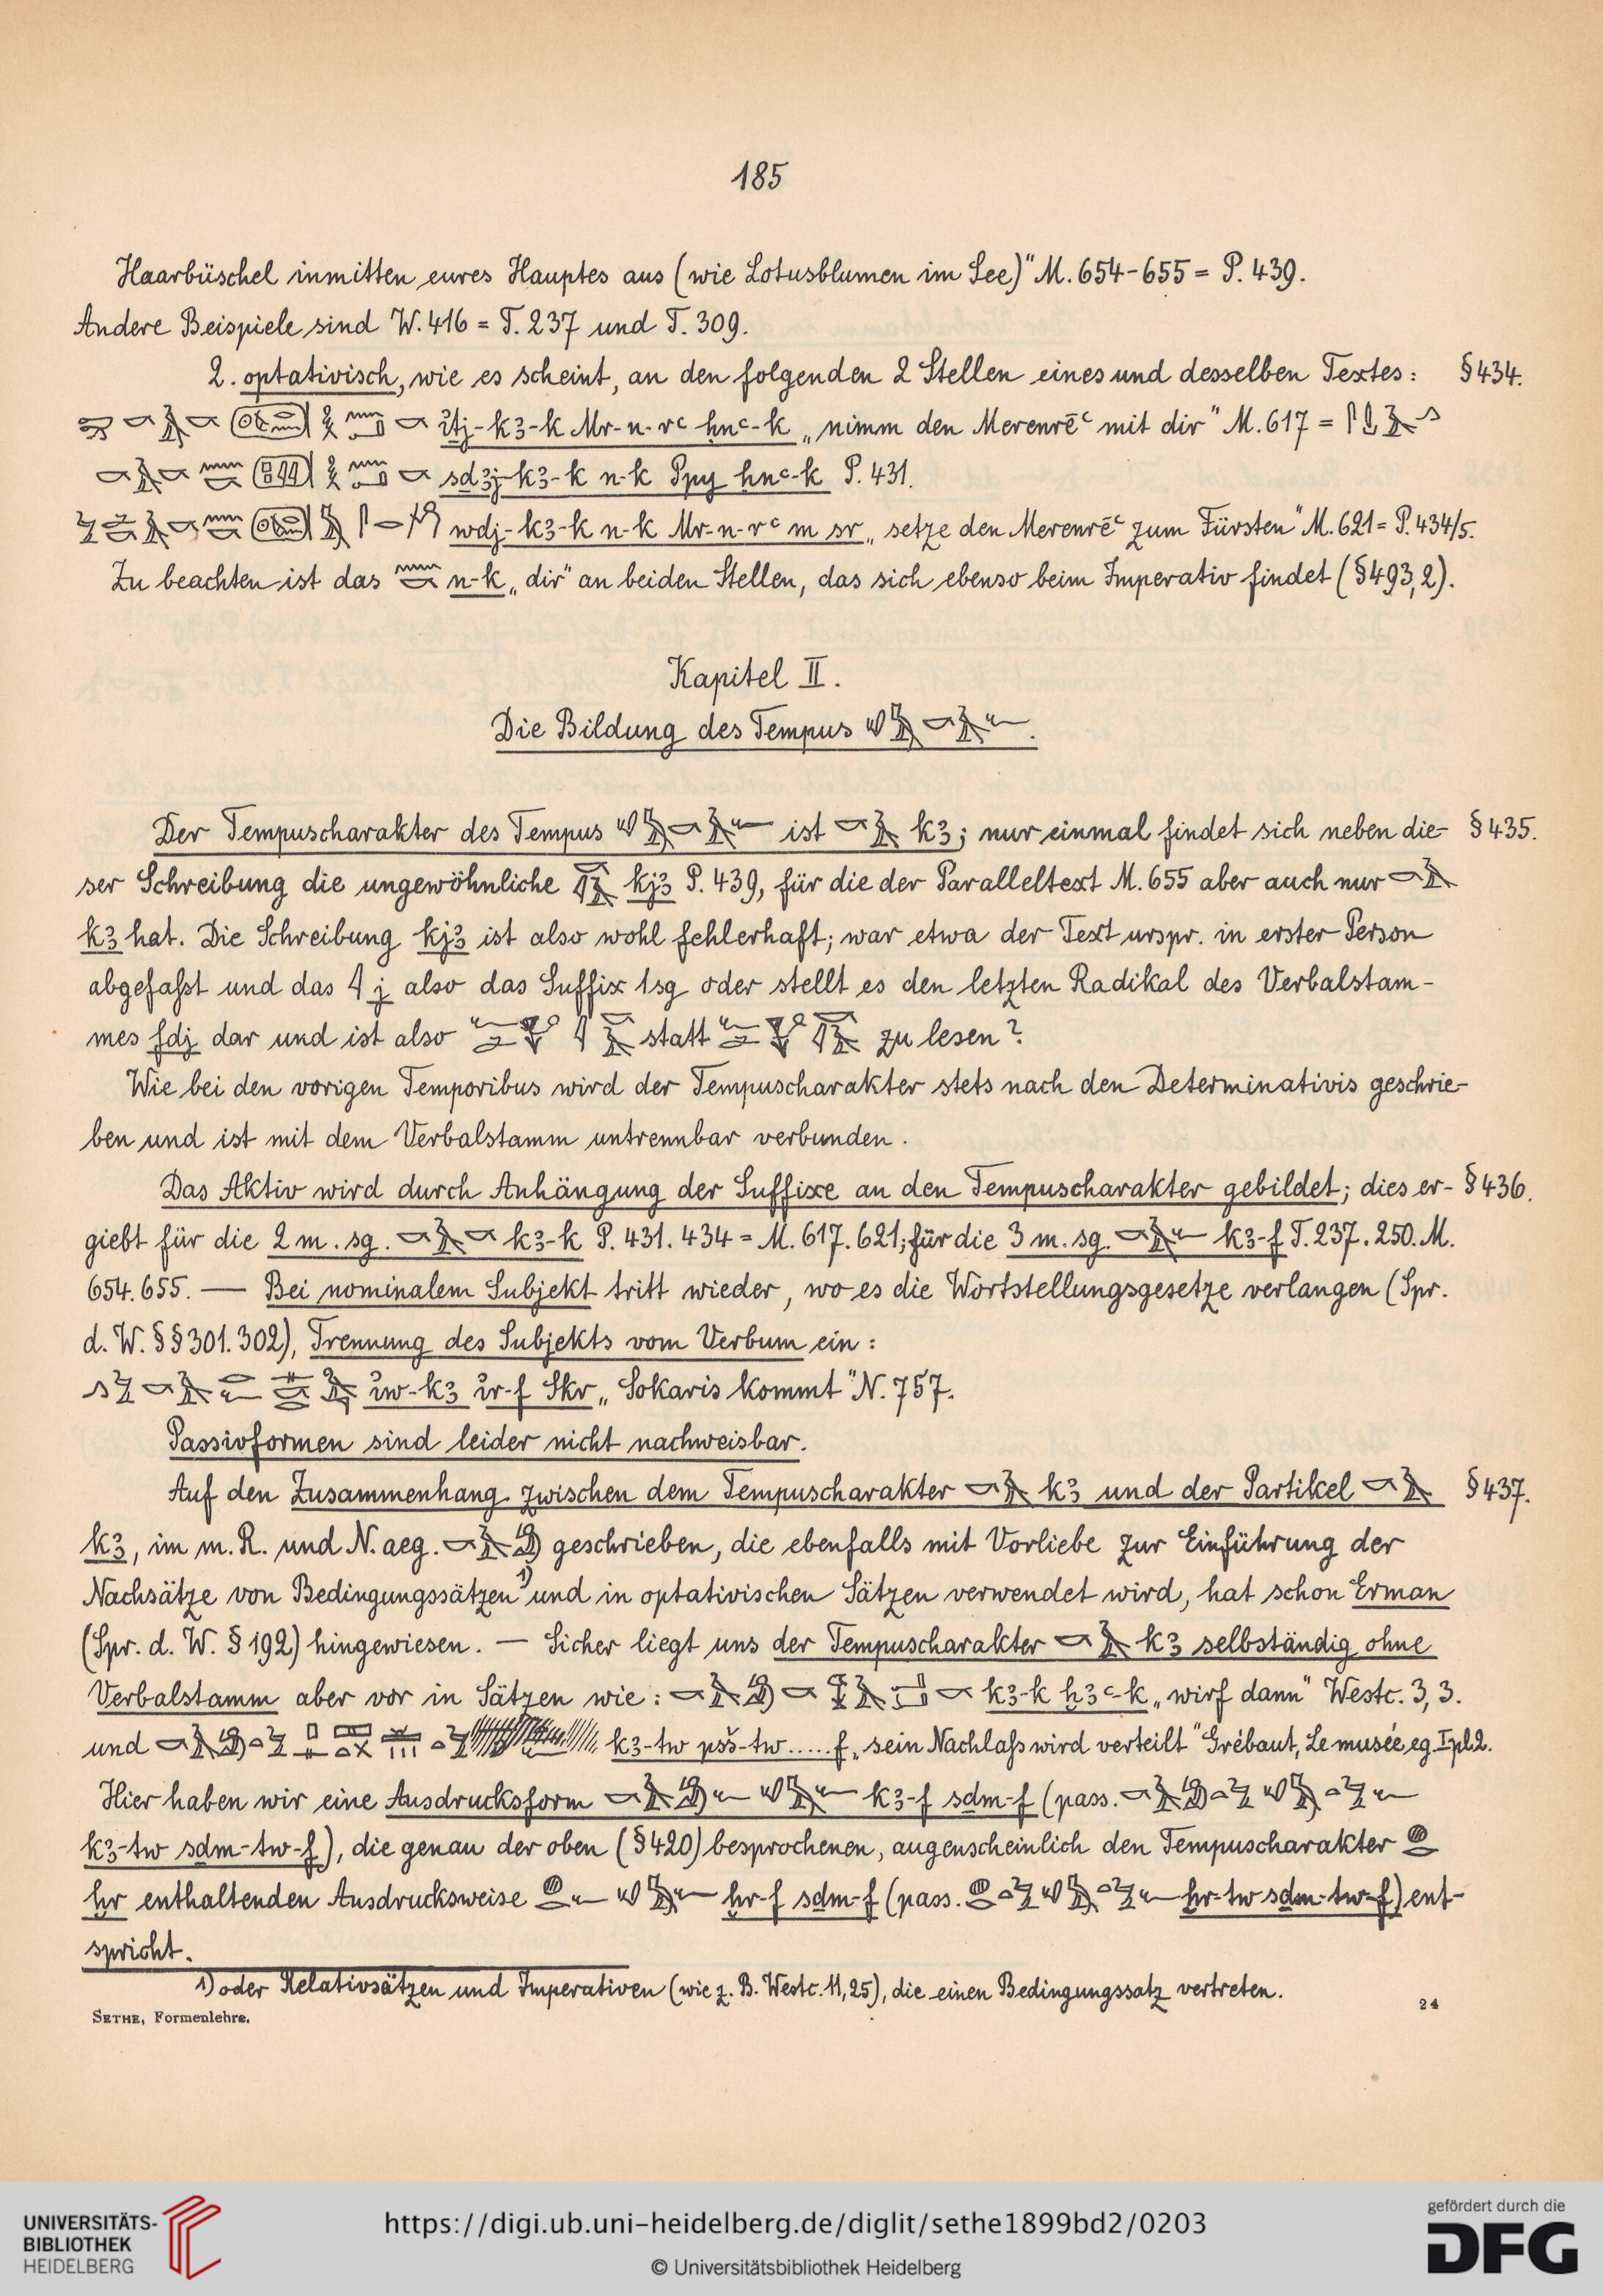 185
Haarbüschel inmitten eures Hauptes aus (wie Lotusblumen im See)" M. 654-655 = P. 439.
Andere Beispiele sind W. 416 = T. 237 und T. 309.
2. optativisch, wie es scheint, an den folgenden 2 Stellen eines und desselben Textes: § 434.
ỉṯj-kꜣ-k Mr-n-rꜥ ḥnꜥ-k „nimm den Merenrēꜥ mit dir" M. 617 =
sdꜣj-kꜣ-k n-k Ppy ḥnꜥ-k P. 431.
wdj-kꜣ-k n-k Mr-n-rꜥ m sr „setze den Merenrēꜥ zum Fürsten" M. 621 = P. 434/5.
Zu beachten ist das n-k „dir" an beiden Stellen, das sich ebenso beim Imperativ findet (§ 493, 2).
Kapitel II.
Die Bildung des Tempus
Der Tempuscharakter des Tempus ist kꜣ; nur einmal findet sich neben die- § 435.
ser Schreibung die ungewöhnliche kjꜣ P. 439, für die der Paralleltext M. 655 aber auch nur
kꜣ hat. Die Schreibung kjꜣ ist also wohl fehlerhaft; war etwa der Text urspr. in erster Person
abgefaßt und das j also das Suffix 1 sg oder stellt es den letzten Radikal des Verbalstam-
mes fdj dar und ist also statt zu lesen?
Wie bei den vorigen Temporibus wird der Tempuscharakter stets nach den Determinativis geschrie-
ben und ist mit dem Verbalstamm untrennbar verbunden.
Das Aktiv wird durch Anhängung der Suffixe an den Tempuscharakter gebildet; dies er- § 436.
giebt für die 2 m. sg. kꜣ-k P. 431. 434 = M. 617. 621; für die 3 m. sg. kꜣ-f T. 237. 250. M.
654. 655. — Bei nominalem Subjekt tritt wieder, wo es die Wortstellungsgesetze verlangen (Spr.
d. W. §§ 301. 302), Trennung des Subjekts vom Verbum ein:
ỉw-kꜣ ỉr-f Skr „Sokaris kommt" N. 757.
Passivformen sind leider nicht nachweisbar.
Auf den Zusammenhang zwischen dem Tempuscharakter kꜣ und der Partikel § 437.
kꜣ, im m. R. und N. aeg. geschrieben, die ebenfalls mit Vorliebe zur Einführung der
Nachsätze von Bedingungssätzen 1) und in optativischen Sätzen verwendet wird, hat schon Erman
(Spr. d. W. § 192) hingewiesen. — Sicher liegt uns der Tempuscharakter kꜣ selbständig ohne
Verbalstamm aber vor in Sätzen wie: kꜣ-k ḫꜣꜥ-k „wirf dann" Westc. 3, 3.
und kꜣ-tw psš-tw.....f „sein Nachlaß wird verteilt" Grébaut, Le musée eg. I pl 2.
Hier haben wir eine Ausdrucksform kꜣ-f sdm-f (pass.
kꜣ-tw sdm-tw-f), die genau der oben (§ 420) besprochenen, augenscheinlich den Tempuscharakter
ḫr enthaltenden Ausdrucksweise ḫr-f sdm-f (pass. ḫr-tw sdm-tw-f) ent-
spricht.
1) oder Relativsätzen und Imperativen (wie z. B. Westc. 11, 25), die einen Bedingungssatz vertreten.
SETHE, Formenlehre. 24
UNIVERSITÄTS-
BIBLIOTHEK
HEIDELBERG
https://digi.ub.uni-heidelberg.de/diglit/sethe1899bd2/0203
© Universitätsbibliothek Heidelberg
gefördert durch die
DFG